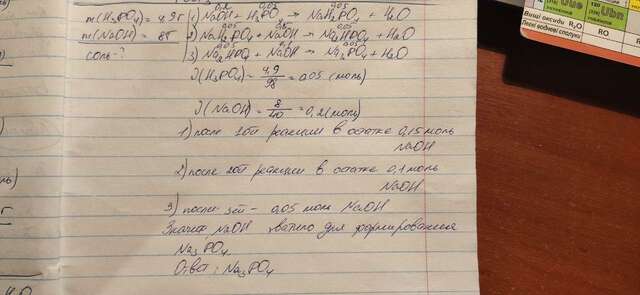 m(H₃PO₄) = 4,9г
1) NaOH + H₃PO₄ → NaH₂PO₄ + H₂O
m(NaOH) = 8г
2) NaH₂PO₄ + NaOH → Na₂HPO₄ + H₂O
соль - ?
3) Na₂HPO₄ + NaOH → Na₃PO₄ + H₂O
ν(H₃PO₄) = 4,9/98 = 0,05 (моль)
ν(NaOH) = 8/40 = 0,2 (моль)
1) после 1ой реакции в остатке 0,15 моль
NaOH
2) после 2ой реакции в остатке 0,1 моль
NaOH
3) после 3ей - 0,05 моль NaOH
Значит NaOH хватило для формирования
Na₃PO₄
Ответ: Na₃PO₄
Вищі оксиди R₂O RO
Леткі водневі сполуки